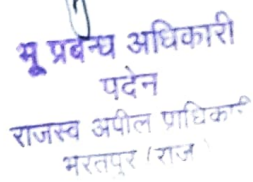 भू प्रबन्ध अधिकारी
पदेन
राजस्व अपील प्राधिकारी
भरतपुर (राज